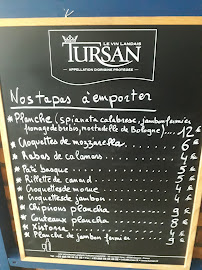 LE VIN LANDAIS
TURSAN
APPELLATION D'ORIGINE PROTÉGÉE
Nos tapas à emporter
* Planche (spianata calabrese, jambon fermier
fromage de brebis, mortadelle de Bologne)....12€
* Croquettes de mozzarella 6
* Rabas de calamars 4
* Pâté basque
* Rillette de canard
* Croquettes de morue
* Croquettes de jambon 4
* Chipirons plancha 9
* Couteaux plancha 8
* Xistorra
* Planche de jambon fermier 9